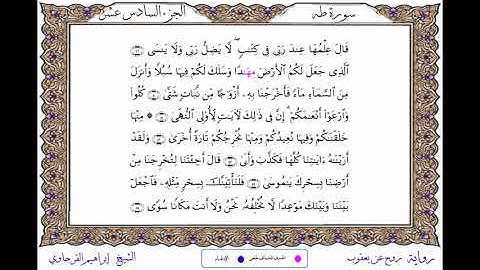 سورة طه
الجزء السادس عشر
قَالَ عِلْمُهَا عِندَ رَبِّى فِى كِتَٰبٍ لَّا يَضِلُّ رَبِّى وَلَا يَنسَى
ٱلَّذِى جَعَلَ لَكُمُ ٱلْأَرْضَ مِهَٰدًا وَسَلَكَ لَكُمْ فِيهَا سُبُلًا وَأَنزَلَ
مِنَ ٱلسَّمَآءِ مَآءً فَأَخْرَجْنَا بِهِۦٓ أَزْوَٰجًا مِّن نَّبَاتٍ شَتَّىٰ كُلُوا۟
وَٱرْعَوْا۟ أَنْعَٰمَكُمْ إِنَّ فِى ذَٰلِكَ لَءَايَٰتٍ لِّأُو۟لِى ٱلنُّهَىٰ ۞ مِنْهَا
خَلَقْنَٰكُمْ وَفِيهَا نُعِيدُكُمْ وَمِنْهَا نُخْرِجُكُمْ تَارَةً أُخْرَىٰ وَلَقَدْ
أَرَيْنَٰهُ ءَايَٰتِنَا كُلَّهَا فَكَذَّبَ وَأَبَىٰ قَالَ أَجِئْتَنَا لِتُخْرِجَنَا مِنْ
أَرْضِنَا بِسِحْرِكَ يَٰمُوسَىٰ فَلَنَأْتِيَنَّكَ بِسِحْرٍ مِّثْلِهِۦ فَٱجْعَلْ
بَيْنَنَا وَبَيْنَكَ مَوْعِدًا لَّا نُخْلِفُهُۥ نَحْنُ وَلَآ أَنتَ مَكَانًا سُوًى
رواية روح عن يعقوب
الشيخ إبراهيم القرجاوي